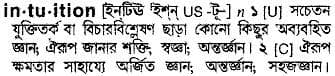 in·tu·ition [ইনটিউ'ইশ্ন্ US -টূ-] n ১ [U] সচেতন
যুক্তিতর্ক বা বিচারবিশ্লেষণ ছাড়া কোনো কিছুর অব্যবহিত
জ্ঞান; ঐরূপ জানার শক্তি, স্বজ্ঞা; অন্তর্জ্ঞান। ২ [C] ঐরূপ
ক্ষমতার সাহায্যে অর্জিত জ্ঞান; অন্তর্জ্ঞান; সহজজ্ঞান।